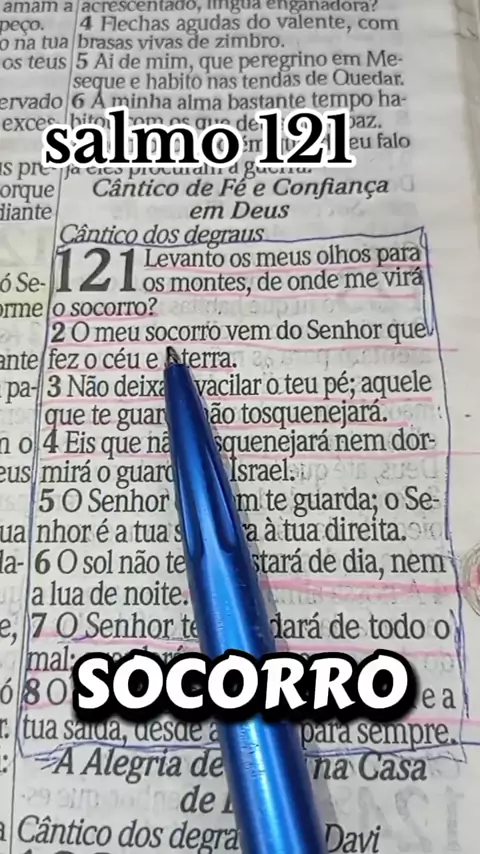 amam a
peço.
o na tua
os teus
ervado
exces
us pre-
orque
diante
ó Se-
orme
ante
pa-
n o
eus
ua
la-
e,
ó
r.
acrescentado, língua enganadora?
4 Flechas agudas do valente, com
brasas vivas de zimbro.
5 Ai de mim, que peregrino em Me-
seque e habito nas tendas de Quedar.
6 A minha alma bastante tempo ha-
paz.
eu falo
salmo 121
Cântico de Fé e Confiança
em Deus
Cântico dos degraus
121 Levanto os meus olhos para
os montes, de onde me virá
o socorro?
2 O meu socorro vem do Senhor que
fez o céu e a terra.
3 Não deixa vacilar o teu pé; aquele
que te guar não tosquenejará.
4 Eis que nã squenejará nem dor-
mirá o guard Israel.
5 O Senhor m te guarda; o Se-
nhor é a tua s a à tua direita.
6 O sol não te stará de dia, nem
a lua de noite.
7 O Senhor te dará de todo o
mal;
SOCORRO
8 O e a
tua saída, desde a para sempre.
A Alegria de na Casa
de
Cântico dos degra Davi